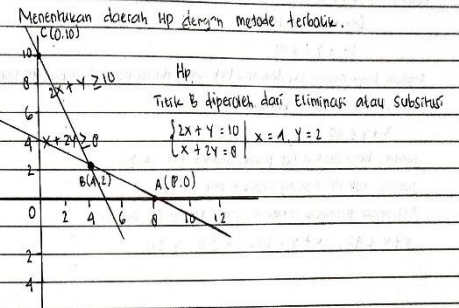 Menentukan daerah Hp dengan metode terbalik.
C(0,10)
10
8
2x + y ≥ 10
6
4
x + 2y ≥ 8
2
B(4,2)
A(8,0)
0 2 4 6 8 10 12
2
4
Hp
Titik B diperoleh dari Eliminasi atau Subsitusi
{2x + y = 10 | x = 4, y = 2
{x + 2y = 8